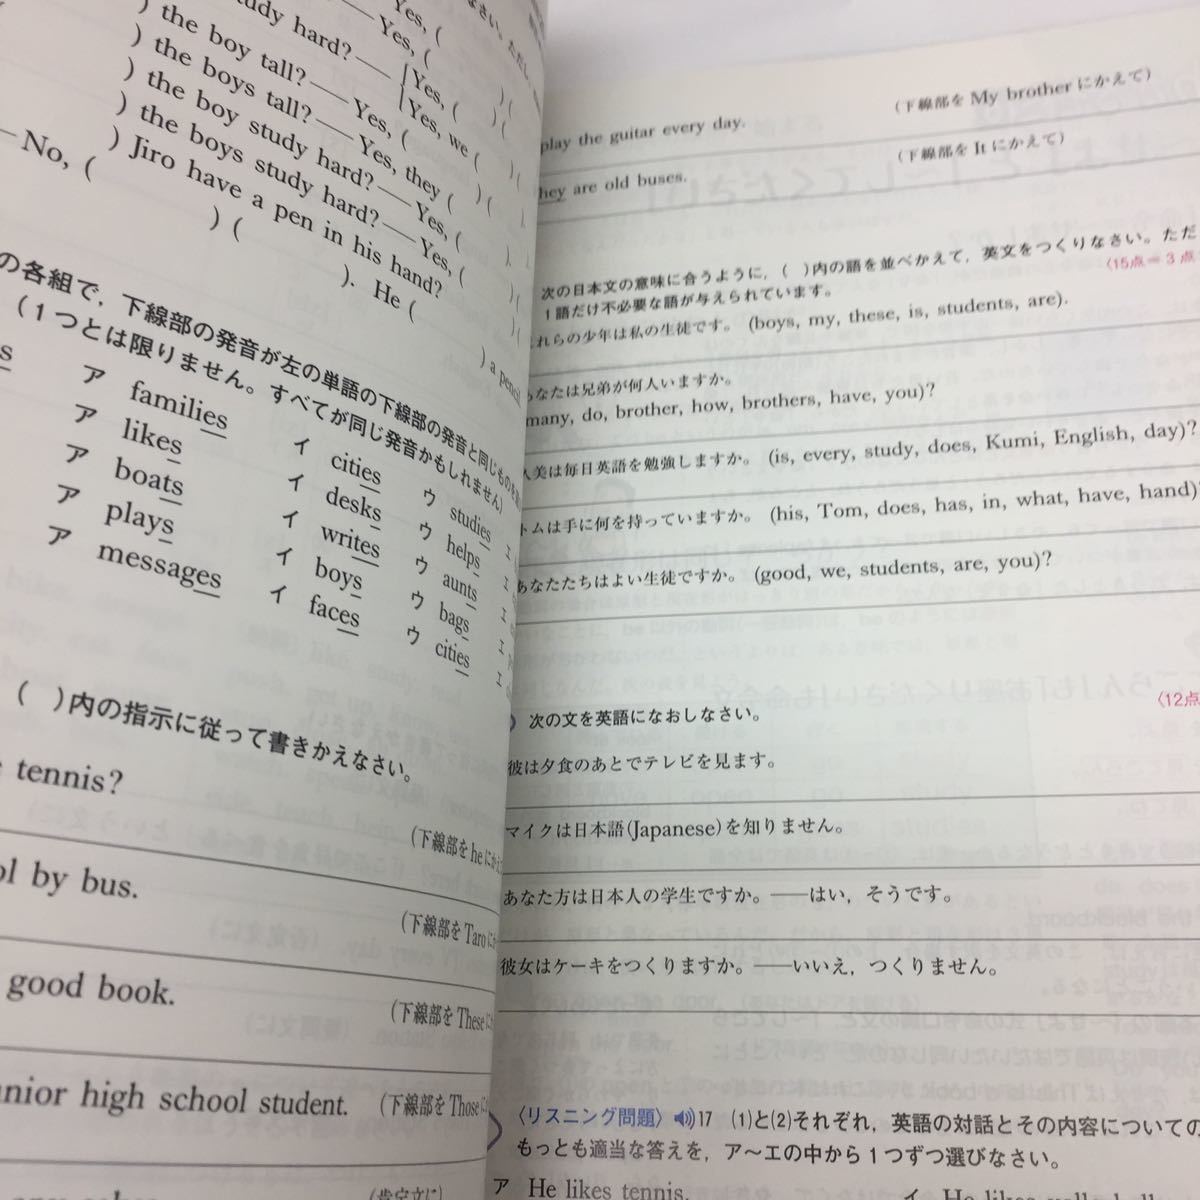 Yes, (
study hard? — Yes, ( )(
Yes, we (
) the boy tall? — Yes, ( )(
) the boys tall? — Yes, they (
) the boy study hard? — Yes, ( )(
) the boys study hard? — Yes, (
) Jiro have a pen in his hand?
— No, ( )( ). He ( ) a pencil
の各組で，下線部の発音が左の単語の下線部の発音と同じものを
(１つとは限りません。すべてが同じ発音かもしれません)
ア families イ cities ウ studies エ
ア likes イ desks ウ helps エ
ア boats イ writes ウ aunts エ
ア plays イ boys ウ bags エ
ア messages イ faces ウ cities エ
( )内の指示に従って書きかえなさい。
tennis?
(下線部を he にかえ
by bus.
(下線部を Taro に
good book.
(下線部を These に
junior high school student.
(下線部を Those に
(肯定文に)
play the guitar every day.
(下線部を My brother にかえて)
They are old buses.
(下線部を It にかえて)
次の日本文の意味に合うように，( )内の語を並べかえて，英文をつくりなさい。ただ
１語だけ不必要な語が与えられています。
〈15点＝３点
これらの少年は私の生徒です。 (boys, my, these, is, students, are).
あなたは兄弟が何人いますか。
(many, do, brother, how, brothers, have, you)?
久美は毎日英語を勉強しますか。 (is, every, study, does, Kumi, English, day)?
トムは手に何を持っていますか。 (his, Tom, does, has, in, what, have, hand)?
あなたたちはよい生徒ですか。 (good, we, students, are, you)?
次の文を英語になおしなさい。
〈12点
彼は夕食のあとでテレビを見ます。
マイクは日本語(Japanese)を知りません。
あなた方は日本人の学生ですか。——はい，そうです。
彼女はケーキをつくりますか。——いいえ，つくりません。
〈リスニング問題〉 17 (1)と(2)それぞれ，英語の対話とその内容についての
もっとも適当な答えを，ア～エの中から１つずつ選びなさい。
ア He likes tennis.
イ He likes volleyball